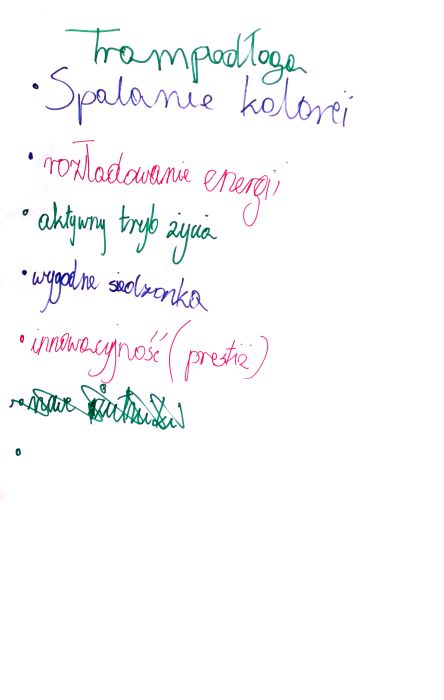 Trampodłoga
• Spalanie kalorei
• rozładowanie energii
• aktywny tryb życia
• wygodne siedzonka
• innowacyjność (prestiż)
•